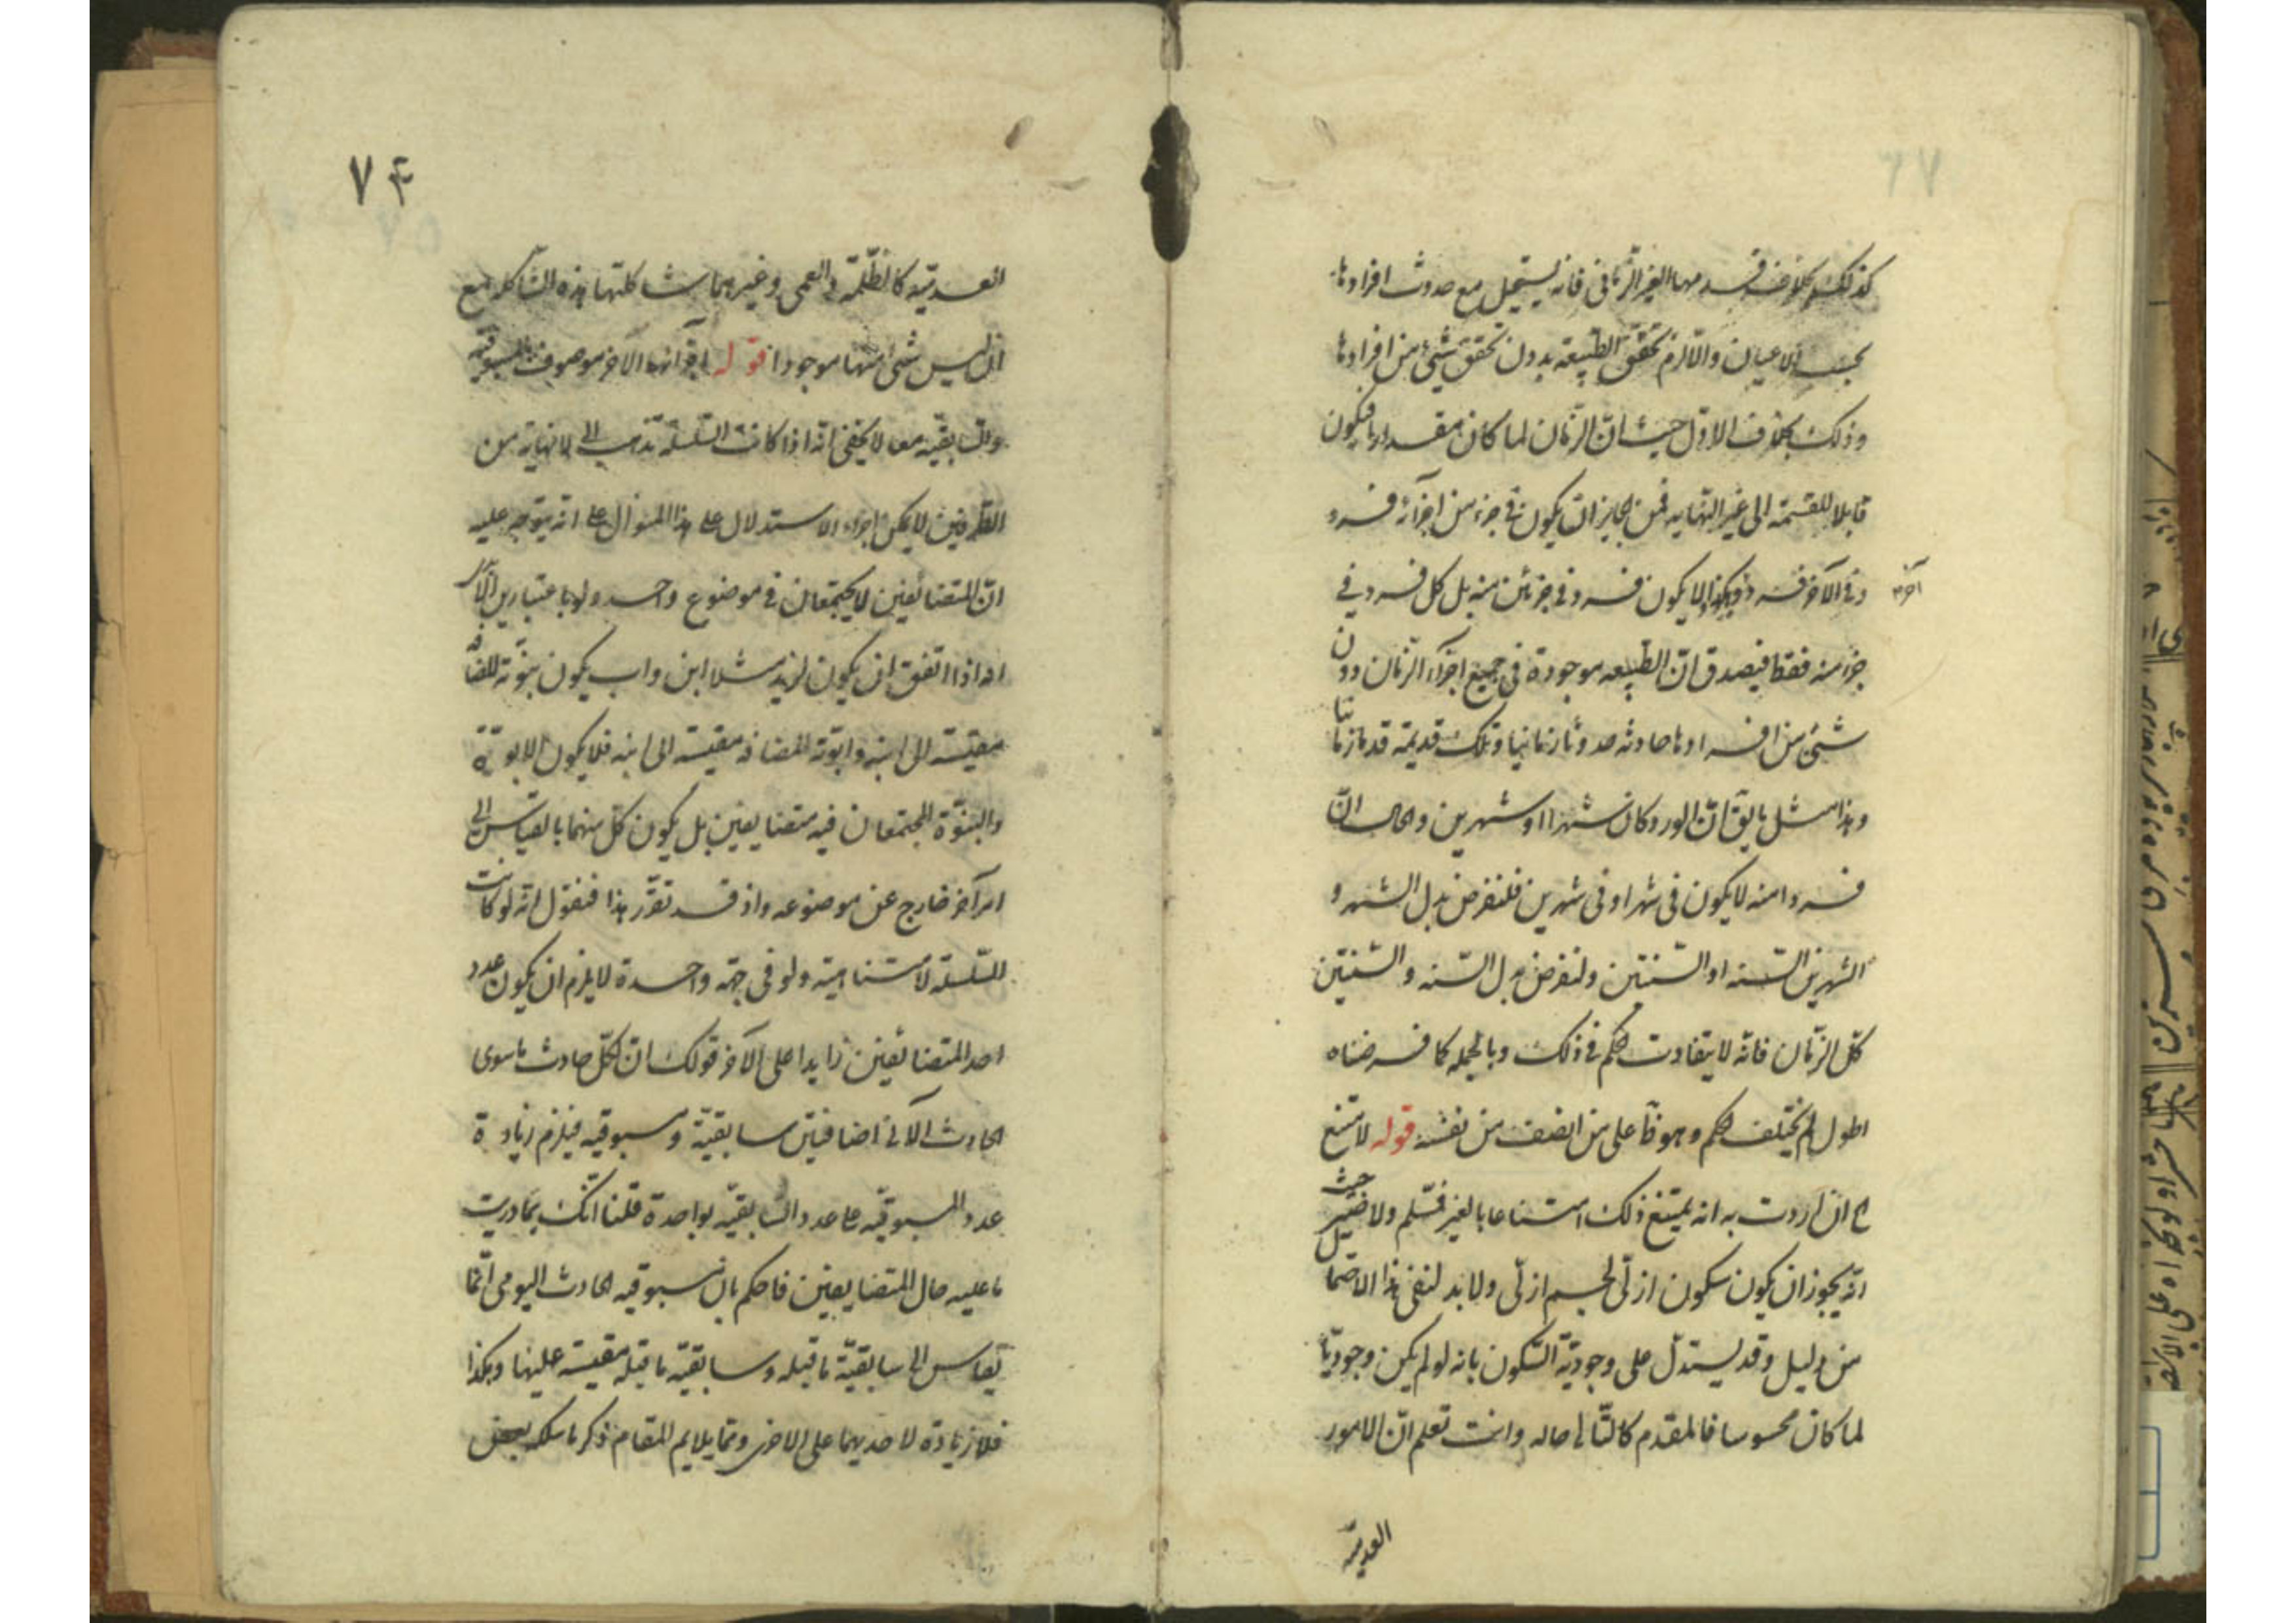 كذلك بخلاف فرد مهما الغير الزماني فانه يستحيل مع حدوث افرادها
بحسب الاعيان واللازم تحقق الطبيعة بدون تحقق شئ من افرادها
وذلك بخلاف الاول حيث ان الزمان لما كان مقداريا فيكون
قابلا للقسمة الى غير النهاية فمن الجايز ان يكون في جزء من اجزائه فرد
وفي الآخر فرد وهكذا لا يكون فرد في جزئين منه بل كل فرد في
آخر
جزء منه فقط فيصدق ان الطبيعه موجودة في جميع اجزاء الزمان دون
شئ من افرادها حادثه حدوثا زمانيا وتلك قديمة قدما زمانيا
وهذا مثل ما يق ان الورد كان شهرا او شهرين والحال ان
فردا منه لا يكون في شهر او في شهرين فلنفرض بدل الشهر و
الشهرين السنه او السنتين ولنفرض بدل السنه والسنتين
كل الزمان فانه لا يتفاوت الحكم في ذلك وبالجمله كلما فرضناه
اطول لم يختلف الحكم وهو على من انصف من نفسه قوله لامتنع
ان اردت به انه يمتنع ذلك امتناعا بالغير فمسلم ولا ضير حيث
انه يجوز ان يكون سكون ازلى لجسم ازلى ولا بد لنفى هذا الاحتمال
من دليل وقد يستدل على وجودية السكون بانه لو لم يكن وجوديا
لما كان محسوسا فالمقدم كالتالى حاله وانت تعلم ان الامور
العدمية
٧۴
العدمية كالظلمة والعمى وغيرهما شاكلتها هذه الشاكله مع
ان ليس شئ منها موجودا قوله اقرانها الآخر موصوف بالمسبوقيه
والسابقيه معا لا يخفى انه اذا كانت السلسلة تذهب الى لا نهاية من
الطرفين لا يمكن اجراء الاستدلال على هذا المنوال على انه يتوجه عليه
ان المتضائفين لا يجتمعان في موضوع واحد ولو باعتبارين الا ترى
انه اذا اتفق ان يكون لزيد مثلا ابن واب يكون بنوته للمضافة
مقيسة الى ابيه وابوته المضافة مقيسة الى ابنه فلا يكون الابوة
والبنوة المجتمعان فيه متضايفين بل يكون كل منهما بالقياس الى
امر آخر خارج عن موضوعه واذ قد تقرر هذا فنقول انه لو كانت
السلسلة لا متناهية ولو في جهة واحدة لا يلزم ان يكون عدد
احد المتضائفين زايدا على الآخر قولك ان لكل حادث ما سوى
الحادث الآنى اضافتين سابقية ومسبوقيه فيلزم زيادة
عدد المسبوقيه على عدد السابقيه بواحدة قلنا انك بما دريت
ما عليه حال المتضايفين فاحكم بان مسبوقيه الحادث اليومى انما
تقاس الى سابقية ما قبله وسابقية ما قبله مقيسة عليها وهكذا
فلا زيادة لاحديهما على الاخرى ومما يلايم المقام ذكر ما سلكه بعض